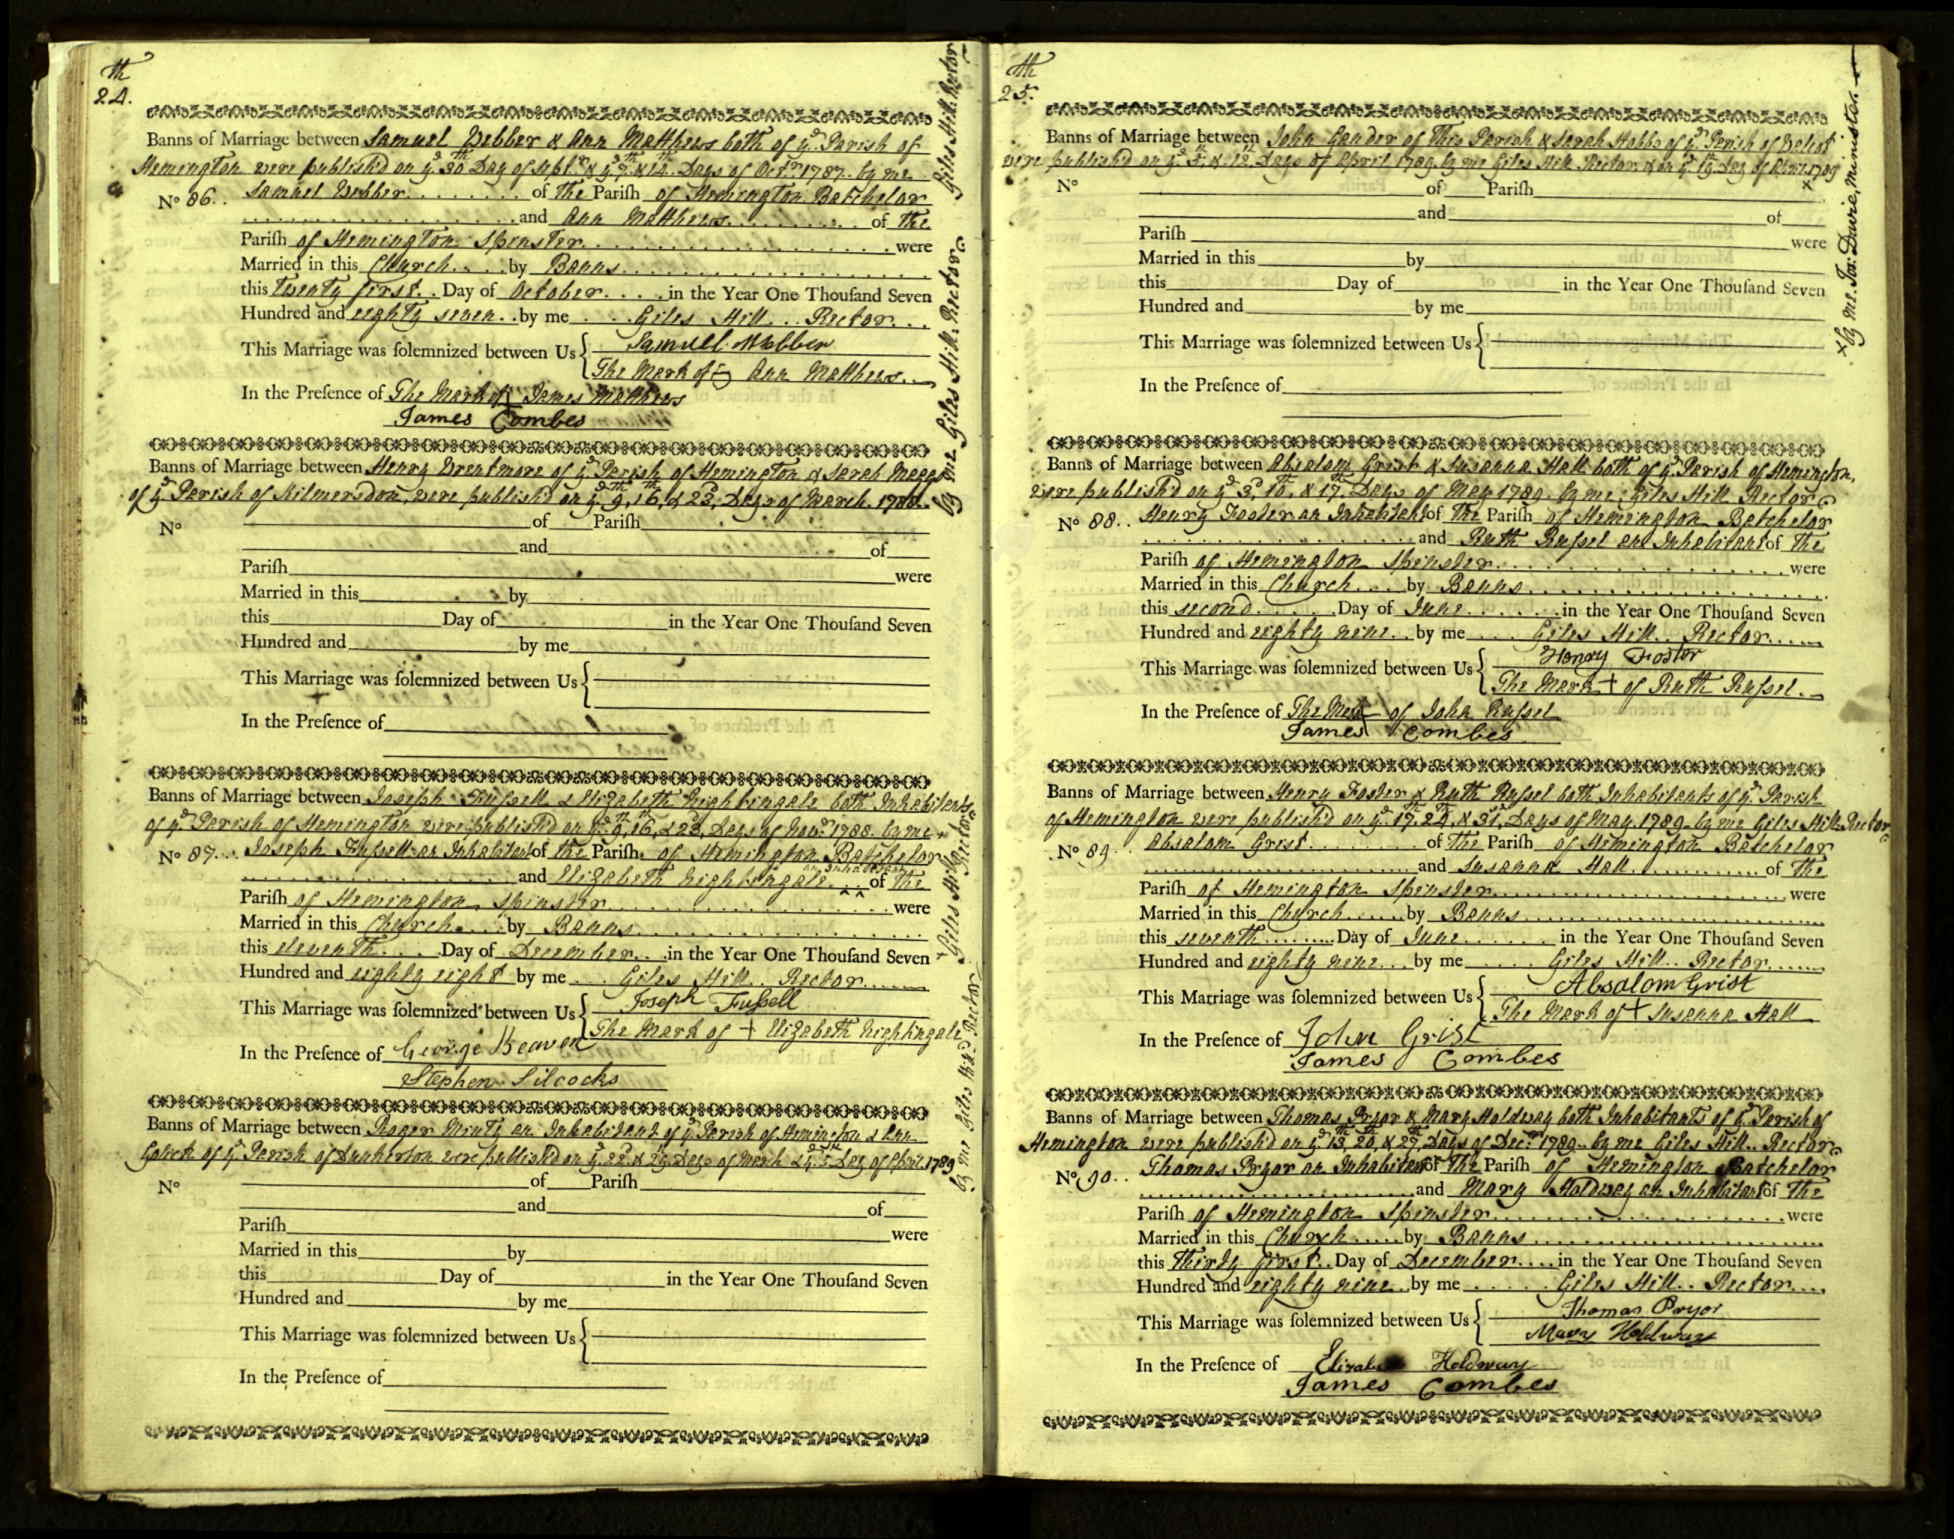 th
24.
Banns of Marriage between Samuel Webber & Ann Matthews both of ye. Parish of
Hemington were publish'd on ye. 30th Day of Septr. & ye. 7th & 14th Days of Octr. 1787. by me
Giles Hill. Rector
No 86.. Samuel Webber........ of the Parish of Hemington Batchelor
and Ann Matthews........ of the
Parish of Hemington Spinster........ were
Married in this Church.... by Banns........
this twenty first.. Day of October.... in the Year One Thouſand Seven
Hundred and eighty seven.. by me.... Giles Hill... Rector...
This Marriage was ſolemnized between Us { Samuel Webber
The Mark of Ann Matthews..
In the Preſence of The Mark of James Matthews
James Combes
Banns of Marriage between Henry Brentmore of ye. Parish of Hemington & Sarah
of ye. Parish of Kilmersdon were publish'd on ye. 9th, 16th, & 23d, Days of March 1788.
by me Giles Hill. Rector
No of Pariſh
and of
Pariſh were
Married in this by
this Day of in the Year One Thouſand Seven
Hundred and by me
This Marriage was ſolemnized between Us {
In the Preſence of
Banns of Marriage between Joseph Fussell & Elizabeth Nightingale both Inhabitants
of ye. Parish of Hemington were publish'd on ye. 9th, 16th, & 23d, Days of Novr. 1788. by me
Giles Hill Rector
No 87... Joseph Fussell an Inhabitant of the Pariſh of Hemington Batchelor
an Inhabitant
and Elizabeth Nightingale.. of the
Pariſh of Hemington Spinster........ were
Married in this Church.... by Banns........
this eleventh.... Day of December... in the Year One Thouſand Seven
Hundred and eighty eight by me... Giles Hill.. Rector......
This Marriage was ſolemnized between Us { Joseph Fussell
The Mark of + Elizabeth Nightingale
In the Preſence of George Beaven
Stephen Silcocks
Banns of Marriage between Roger Minty an Inhabitant of ye. Parish of Hemington & Ann
of ye. Parish of Dunkerton were publish'd on ye. 22d. & 29th Days of March & ye. 5th Day of April 1789
by me Giles Hill Rector
No of Pariſh
and of
Pariſh were
Married in this by
this Day of in the Year One Thouſand Seven
Hundred and by me
This Marriage was ſolemnized between Us {
In the Preſence of
th
25.
Banns of Marriage between John Gander of this Parish & Sarah Hobbs of ye. Parish of
were publish'd on ye. 5th. & 12th. Days of April 1789. by me Giles Hill. Rector, & on ye. 19th. Day of April. 1789
x by me. Jas: Davie, minister.
No of Pariſh
and of
Pariſh were
Married in this by
this Day of in the Year One Thouſand Seven
Hundred and by me
This Marriage was ſolemnized between Us {
In the Preſence of
Banns of Marriage between Absalom Grist & Susanna Hall both of ye. Parish of Hemington,
were publish'd on ye. 3d, 10th, & 17th, Days of May 1789. by me, Giles Hill Rector
No 88.. Henry Foster an Inhabitant of the Pariſh of Hemington Batchelor
and Ruth Russel an Inhabitant of the
Pariſh of Hemington Spinster........ were
Married in this Church.... by Banns........
this second...... Day of June...... in the Year One Thouſand Seven
Hundred and eighty nine... by me.... Giles Hill.. Rector......
This Marriage was ſolemnized between Us { Henry Foster
The Mark + of Ruth Russel.
In the Preſence of The Mark of John Russel
James Combes
Banns of Marriage between Henry Foster & Ruth Russel both Inhabitants of ye. Parish
of Hemington were publish'd on ye. 17th, 24th, & 31st, Days of May 1789. by me Giles Hill Rector
No 89... Absalom Grist........ of the Pariſh of Hemington Batchelor
and Susanna Hall........ of the
Pariſh of Hemington Spinster........ were
Married in this Church...... by Banns........
this seventh........ Day of June...... in the Year One Thouſand Seven
Hundred and eighty nine... by me...... Giles Hill.. Rector......
This Marriage was ſolemnized between Us { Absalom Grist
The Mark of + Susanna Hall
In the Preſence of John Grist
James Combes
Banns of Marriage between Thomas Pryor & Mary Holdway both Inhabitants of ye. Parish of
Hemington were publish'd on ye. 13th, 20th, & 27th, Days of Decr. 1789. by me Giles Hill. Rector
No 90.. Thomas Pryor an Inhabitant of the Pariſh of Hemington Batchelor
and Mary Holdway an Inhabitant of the
Pariſh of Hemington Spinster........ were
Married in this Church..... by Banns........
this thirty first.. Day of December.... in the Year One Thouſand Seven
Hundred and eighty nine.. by me...... Giles Hill.. Rector....
This Marriage was ſolemnized between Us { Thomas Pryor
Mary Holdway
In the Preſence of Elizabeth Holdway
James Combes